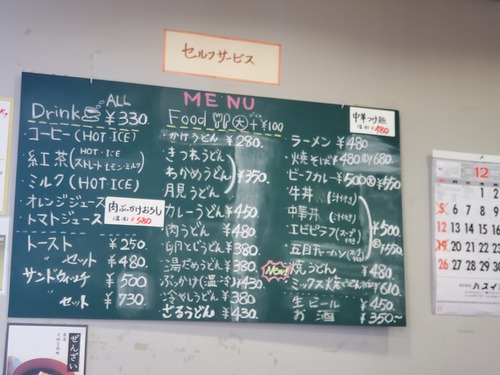 セルフサービス
MENU
Drink ALL ¥330
・コーヒー(HOT・ICE)
・紅茶(HOT・ICE ストレート・レモン・ミルク)
ミルク(HOT・ICE)
オレンジジュース
トマトジュース
トースト ¥250
〃 セット ¥480
サンドウィッチ ¥500
セット ¥730
肉ぶっかけおろし
¥580
Food 大+¥100
・かけうどん ¥280
・きつねうどん
わかめうどん ¥350
月見うどん
カレーうどん ¥450
肉うどん ¥480
卵とじうどん ¥380
湯だめうどん ¥380
ぶっかけ(温・冷) ¥430
冷やしうどん ¥380
ざるうどん ¥430
中華つけ麺
¥480
ラーメン ¥480
・焼そば ¥480 大¥680
・ビーフカレー ¥500 大¥550
・牛丼(汁付き)
・中華丼(汁付き)
・エビピラフ(スープ付き) ¥500
大¥550
New!
焼うどん ¥480
¥610
生ビール ¥450
お酒 ¥350~
12
5
12
19
26
ぜんざい